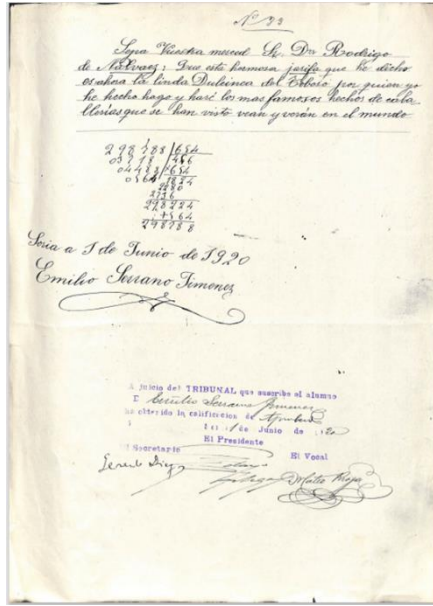 Nº 22
Sepa Vuestra merced Sr. Dn Rodrigo
de Narvaez: Que esta hermosa jarifa que he dicho
es ahora la linda Dulcinea del Toboso por quien yo
he hecho hago y haré los mas famosos hechos de caba
llerias que se han visto vean y verán en el mundo
298788 654
03718 456
04488 654
0564 1824
2280
2736
298224
+564
298788
Soria a 1 de Junio de 1920
Emilio Serrano Jimenez
A juicio del TRIBUNAL que suscribe el alumno
D Emilio Serrano Jimenez
ha obtenido la calificación de Aprobado
1 de Junio de 1920
El Presidente
El Secretario El Vocal
Gerardo Diego